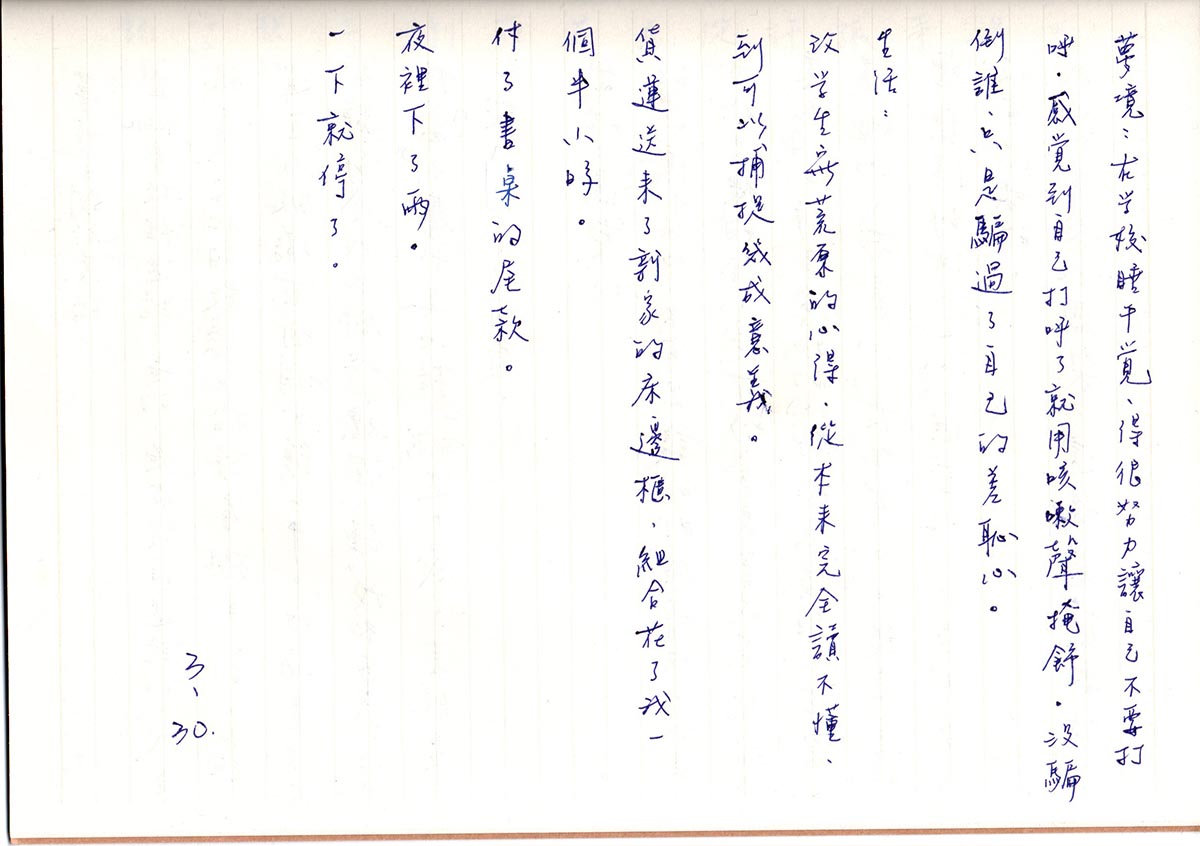 夢境：在學校睡午覺、得很努力讓自己不要打
呼．感覺到自己打呼了就用咳嗽聲掩飾．沒騙
倒誰、只是騙過了自己的羞恥心。
生活：
改學生寫荒原的心得、從本來完全讀不懂、
到可以捕捉幾成意義。
貨運送來了新家的床邊櫃、組合花了我一
個半小時。
付了書桌的尾款。
夜裡下了雨。
一下就停了。
3、30.